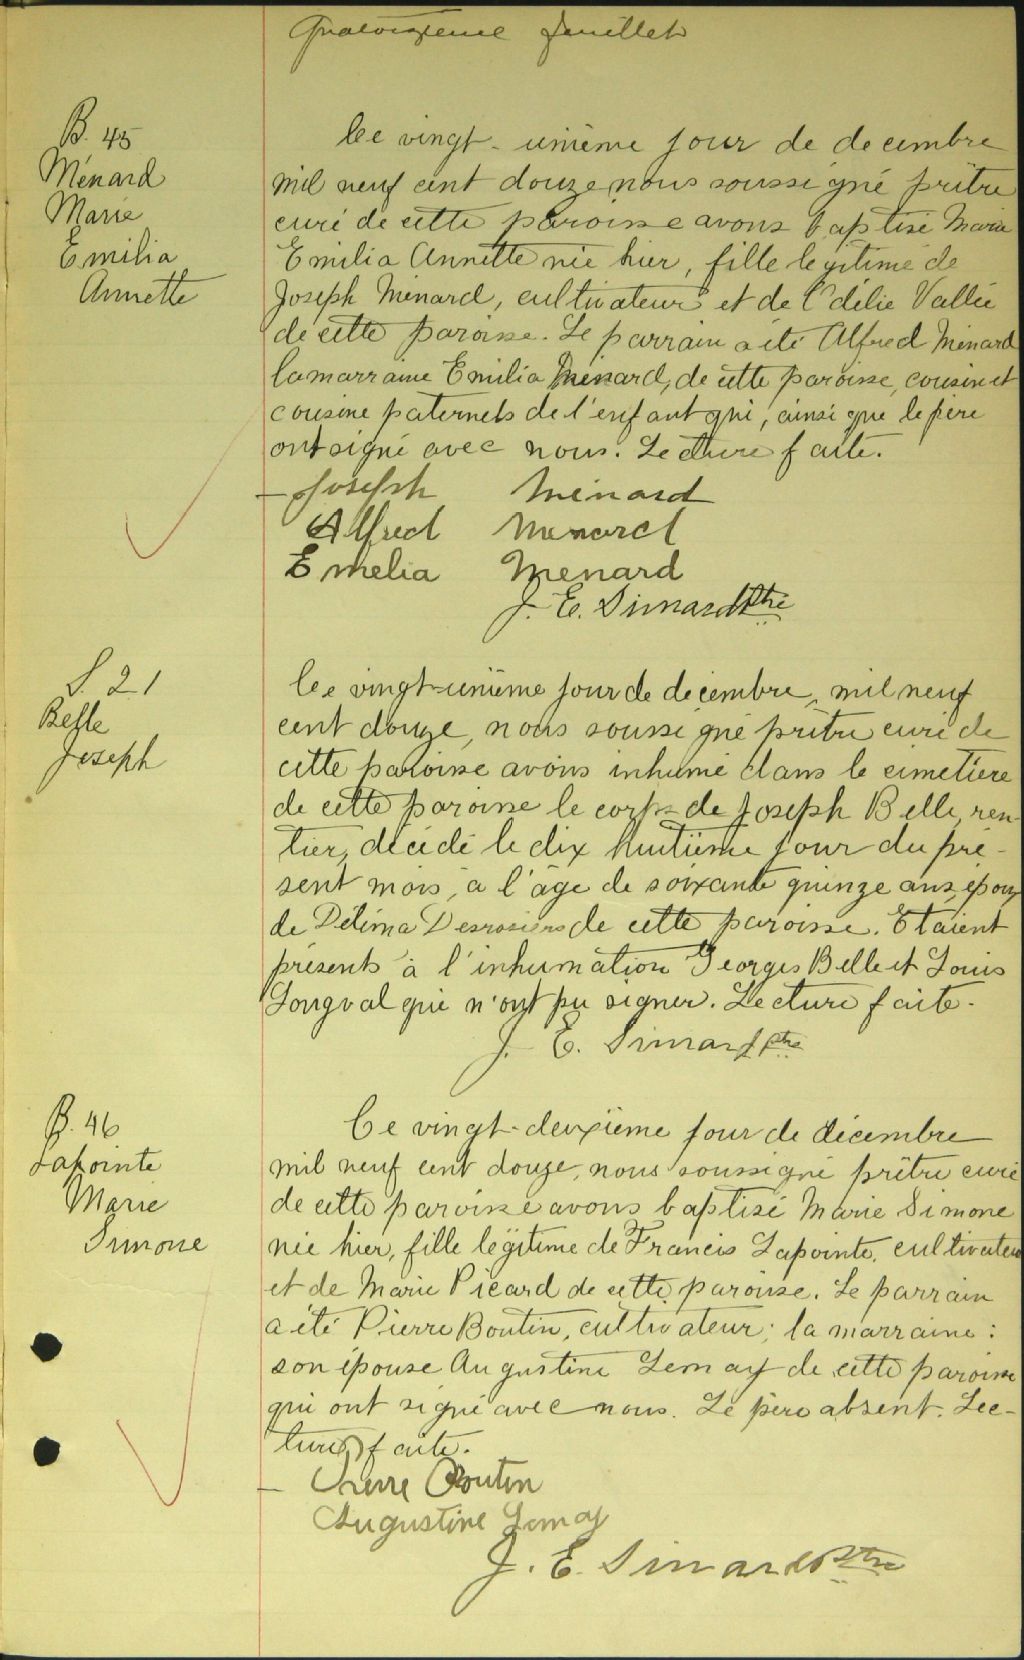 Quatorzième feuillet
B. 45
Ménard
Marie
Emilia
Annette
Ce vingt-unième jour de decembre
mil neuf cent douze nous soussigné prêtre
curé de cette paroisse avons baptisé Marie
Emilia Annette née hier, fille légitime de
Joseph Ménard, cultivateur et de Odélie Vallée
de cette paroisse. Le parrain a été Alfred Ménard
la marraine Emilia Ménard, de cette paroisse, cousin et
cousine paternels de l'enfant qui, ainsi que le père
ont signé avec nous. Lecture faite.
Joseph Ménard
Alfred Menard
Emelia Menard
J. E. Simard Ptre
S. 21
Belle
Joseph
Ce vingt-unième jour de décembre, mil neuf
cent douze, nous soussigné prêtre curé de
cette paroisse avons inhumé dans le cimetière
de cette paroisse le corps de Joseph Belle, ren-
tier, décédé le dix huitième jour du pré-
sent mois, à l'âge de soixante quinze ans, époux
de Délima Desrosiers de cette paroisse. Etaient
présents à l'inhumation Georges Belle et Louis
Longval qui n'ont pu signer. Lecture faite.
J. E. Simard Ptre
B. 46
Lapointe
Marie
Simone
Ce vingt-deuxième jour de décembre
mil neuf cent douze, nous soussigné prêtre curé
de cette paroisse avons baptisé Marie Simone
née hier, fille légitime de Francis Lapointe, cultivateur
et de Marie Picard de cette paroisse. Le parrain
a été Pierre Boutin, cultivateur; la marraine:
son épouse Augustine Lemay de cette paroisse
qui ont signé avec nous. Le père absent. Lec-
ture faite.
Pierre Boutin
Augustine Lemay
J. E. Simard Ptre